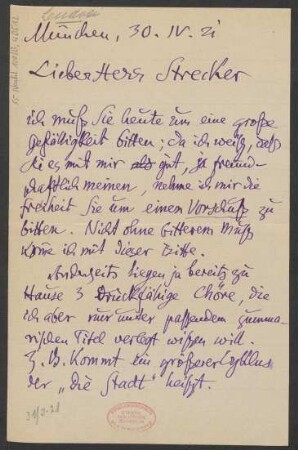 München, 30. IV. 21
Lieber Herr Strecker
ich muß Sie heute um eine große
gefälligkeit bitten; da ich weiß, daß
Sie es mit mir gut, ja freund-
schaftlich meinen, nehme ich mir die
freiheit Sie um einen Vorschuß zu
bitten. Nicht ohne bitteren Muß
komme ich mit dieser Bitte.
Anderseits liegen ja bereits zu
Hause 3 Druckfähige Chöre, die
ich aber nur unter passendem summa-
rischen Titel verlegt wissen will.
Z. B. kommt ein größerer Zyklus
der „die Stadt" heißt.